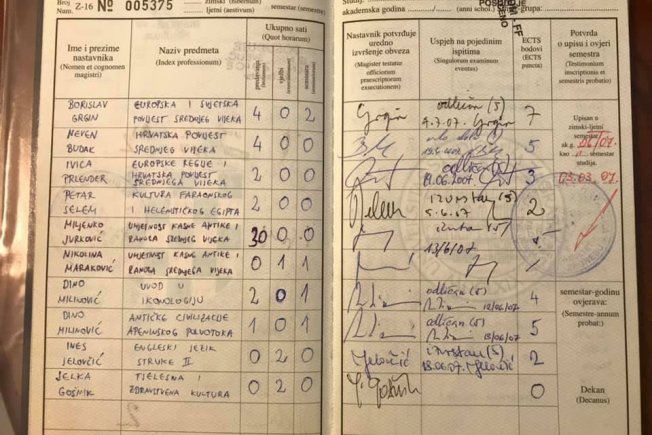 Broj Z-16 № 005375
ljetni (aestivum) semestar (semestre)
akademska godina
(anni schol.)
Ime i prezime nastavnika (Nomen et cognomen magistri)
Naziv predmeta (Index professionum)
Ukupno sati (Quot horarum)
predavanja
vježbi
seminara
Nastavnik potvrđuje uredno izvršenje obveza (Magister testatur officiorum praescriptorum exsecutionem)
Uspjeh na pojedinim ispitima (Singulorum examinum eventus)
ECTS bodovi (ECTS puncta)
Potvrda o upisu i ovjeri semestra (Testimonium inscriptionis et semestris probatio)
BORISLAV GRGIN EUROPSKA I SVJETSKA POVIJEST SREDNJEG VIJEKA 4 0 2 Grgin odličan (5) 9.7.07. Grgin 7
NEVEN BUDAK HRVATSKA POVIJEST SREDNJEG VIJEKA 4 0 0 5
IVICA PRLENDER EUROPSKE REGIJE I HRVATSKA POVIJEST SREDNJEGA VIJEKA 2 0 0 odličan (5) 19.06.2007. 3
PETAR SELEM KULTURA FARAONSKOG I HELENISTIČKOG EGIPTA 2 0 0 Selem izvrstan (5) 5.6.07 2
MILJENKO JURKOVIĆ UMJETNOST KASNE ANTIKE I RANOGA SREDNJEG VIJEKA 30 0 0 (5) 13/6/07
NIKOLINA MARAKOVIĆ UMJETNOST KASNE ANTIKE I RANOGA SREDNJEGA VIJEKA 0 1 1 1
DINO MILINOVIĆ UVOD U IKONOLOGIJU 2 0 1 odličan (5) 12/06/07 4
DINO MILINOVIĆ ANTIČKE CIVILIZACIJE APENINSKOG POLUOTOKA 1 0 1 odličan (5) 13/06/07 5
INES JELOVČIĆ ENGLESKI JEZIK STRUKE II 0 2 0 Jelovčić izvrstan (5) 18.06.07. Jelovčić 2
JELKA GOŠNIK TJELESNA I ZDRAVSTVENA KULTURA 0 2 0 0
Upisan u zimski-ljetni semestar
ak.g. 06/07.
kao semestar studija.
03.03.07.
semestar-godinu ovjerava:
(Semestre-annum probat:)
Dekan
(Decanus)